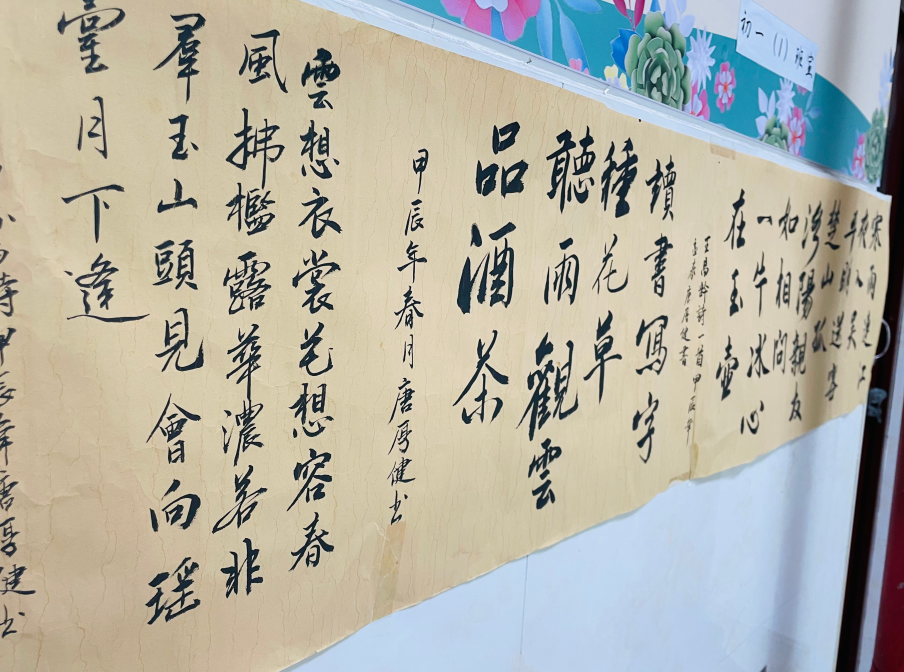 初一（1）班宣
寒雨連江
夜入吳
平明送客
楚山孤
洛陽親友
如相問
一片冰心
在玉壺
王昌齡詩一首甲辰年
唐厚健書
讀書寫字
種花草
聽雨觀雲
品酒茶
甲辰年春月唐厚健书
雲想衣裳花想容春
風拂檻露華濃若非
羣玉山頭見會向瑶
臺月下逢
詩甲辰年唐厚健书